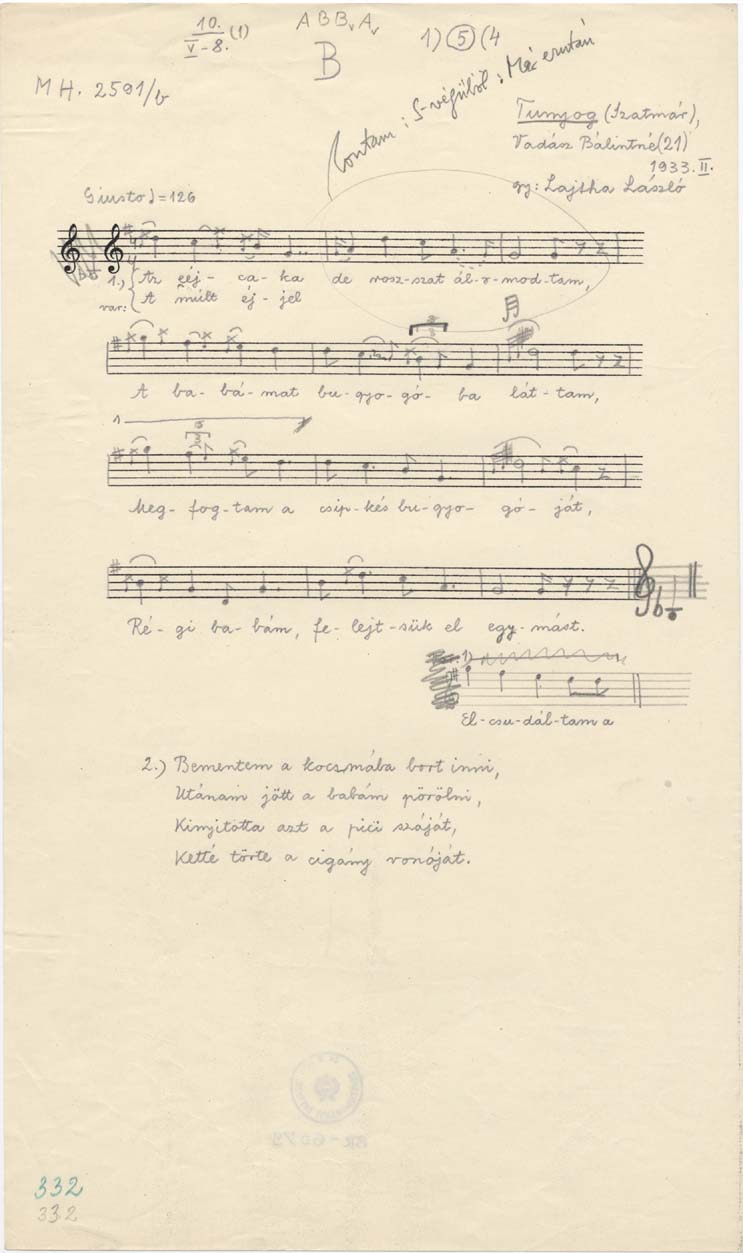 10.
V-8. (1)
A B Bv Av
B
1) 5 (4
MH. 2591/b
Tunyog (Szatmár),
Vadász Bálintné (21)
1933. II.
gy: Lajtha László
Giusto ♩=126
1.) Az ééj-ca-ka de rosz-szat ál-mod-tam,
var: A múlt éj-jel
A ba-bá-mat bu-gyo-gó-ba lát-tam,
1
Meg-fog-tam a csip-kés bu-gyo-gó-ját,
Ré-gi ba-bám, fe-lejt-sük el egy-mást.
1)
El-csu-dál-tam a
2.) Bementem a kocsmába bort inni,
Utánam jött a babám pörölni,
Kinyitotta azt a pici száját,
Ketté törte a cigány vonóját.
332
332